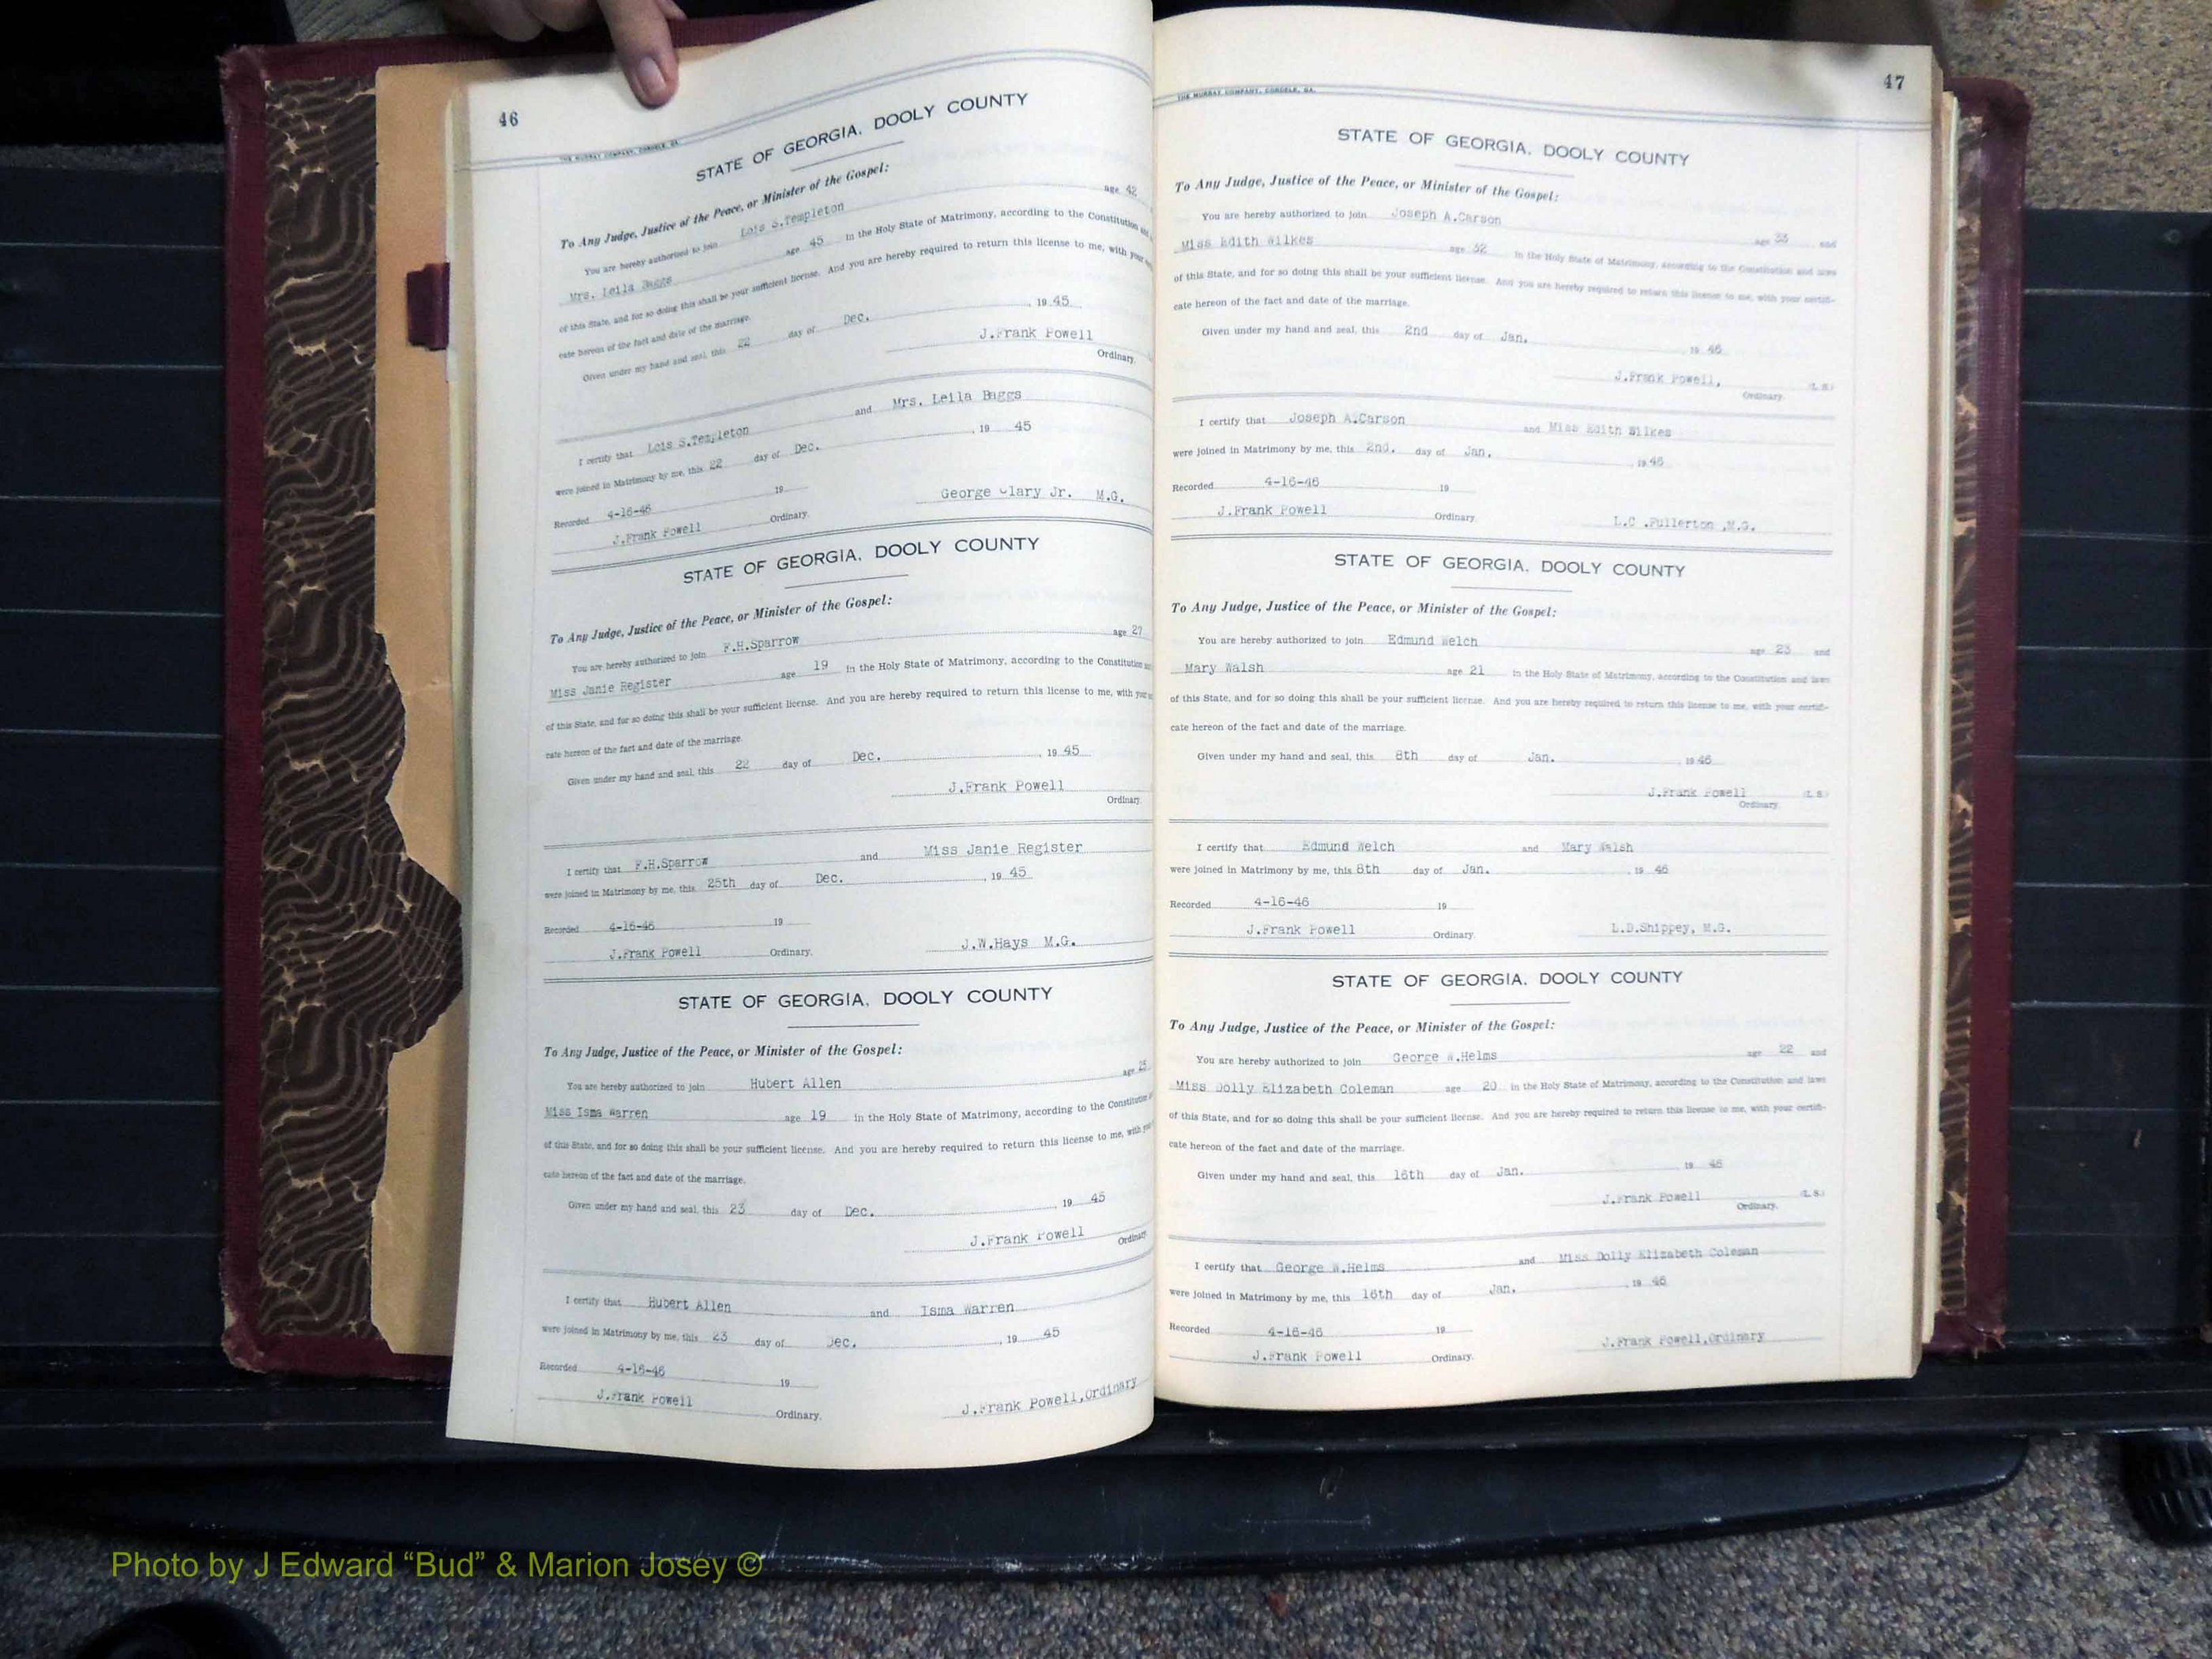 46
THE MURRAY COMPANY, CORDELE, GA.
STATE OF GEORGIA, DOOLY COUNTY
To Any Judge, Justice of the Peace, or Minister of the Gospel:
You are hereby authorized to join Lois S.Templeton age 42
Mrs. Leila Baggs age 45 in the Holy State of Matrimony, according to the Constitution and
of this State, and for so doing this shall be your sufficient license. And you are hereby required to return this license to me, with your
cate hereon of the fact and date of the marriage.
Given under my hand and seal, this 22 day of Dec. , 19 45
J.Frank Powell
Ordinary.
I certify that Lois S.Templeton and Mrs. Leila Baggs
were joined in Matrimony by me, this 22 day of Dec. , 19 45
Recorded 4-16-46 19
George Clary Jr. M.G.
J.Frank Powell Ordinary.
STATE OF GEORGIA, DOOLY COUNTY
To Any Judge, Justice of the Peace, or Minister of the Gospel:
You are hereby authorized to join F.H.Sparrow age 27
Miss Janie Register age 19 in the Holy State of Matrimony, according to the Constitution
of this State, and for so doing this shall be your sufficient license. And you are hereby required to return this license to me, with your
cate hereon of the fact and date of the marriage.
Given under my hand and seal, this 22 day of Dec. , 19 45
J.Frank Powell
Ordinary.
I certify that F.H.Sparrow and Miss Janie Register
were joined in Matrimony by me, this 25th day of Dec. , 19 45
Recorded 4-16-46 19
J.Frank Powell Ordinary. J.W.Hays M.G.
STATE OF GEORGIA, DOOLY COUNTY
To Any Judge, Justice of the Peace, or Minister of the Gospel:
You are hereby authorized to join Hubert Allen age
Miss Isma Warren age 19 in the Holy State of Matrimony, according to the Constitution
of this State, and for so doing this shall be your sufficient license. And you are hereby required to return this license to me, with
cate hereon of the fact and date of the marriage.
Given under my hand and seal, this 23 day of Dec. , 19 45
J.Frank Powell
Ordinary
I certify that Hubert Allen and Isma Warren
were joined in Matrimony by me, this 23 day of Dec. , 19 45
Recorded 4-16-46 19
J.Frank Powell Ordinary. J.Frank Powell,Ordinary
47
THE MURRAY COMPANY, CORDELE, GA.
STATE OF GEORGIA, DOOLY COUNTY
To Any Judge, Justice of the Peace, or Minister of the Gospel:
You are hereby authorized to join Joseph A.Carson age and
Miss Edith Wilkes age in the Holy State of Matrimony, according to the Constitution and laws
of this State, and for so doing this shall be your sufficient license. And you are hereby required to return this license to me, with your certifi-
cate hereon of the fact and date of the marriage.
Given under my hand and seal, this 2nd day of Jan. , 19 46
J.Frank Powell, (L. S.)
Ordinary.
I certify that Joseph A.Carson and Miss Edith Wilkes
were joined in Matrimony by me, this 2nd. day of Jan. , 19 46
Recorded 4-16-46 19
J.Frank Powell Ordinary. L.C .Fullerton ,M.G.
STATE OF GEORGIA, DOOLY COUNTY
To Any Judge, Justice of the Peace, or Minister of the Gospel:
You are hereby authorized to join Edmund Welch age 23 and
Mary Walsh age 21 in the Holy State of Matrimony, according to the Constitution and laws
of this State, and for so doing this shall be your sufficient license. And you are hereby required to return this license to me, with your certifi-
cate hereon of the fact and date of the marriage.
Given under my hand and seal, this 8th day of Jan. , 19 46
J.Frank Powell (L. S.)
Ordinary.
I certify that Edmund Welch and Mary Walsh
were joined in Matrimony by me, this 8th day of Jan. , 19 46
Recorded 4-16-46 19
J.Frank Powell Ordinary. L.D.Shippey, M.G.
STATE OF GEORGIA, DOOLY COUNTY
To Any Judge, Justice of the Peace, or Minister of the Gospel:
You are hereby authorized to join George W.Helms age 22 and
Miss Dolly Elizabeth Coleman age 20 in the Holy State of Matrimony, according to the Constitution and laws
of this State, and for so doing this shall be your sufficient license. And you are hereby required to return this license to me, with your certifi-
cate hereon of the fact and date of the marriage.
Given under my hand and seal, this 16th day of Jan. 19 46
J.Frank Powell (L. S.)
Ordinary.
I certify that George W.Helms and Miss Dolly Elizabeth Coleman
were joined in Matrimony by me, this 16th day of Jan. , 19 46
Recorded 4-16-46 19
J.Frank Powell Ordinary. J.Frank Powell,Ordinary
Photo by J Edward “Bud” & Marion Josey ©